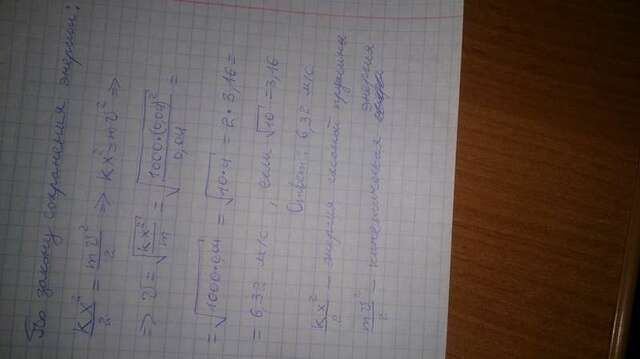 По закону сохранения энергии:
kx²/2 = mv²/2 => kx² = mv² =>
=> v = √(kx²/m) = √(1000·(0,04)²/0,04) =
= √(1000·0,04) = √(10·4) = 2·3,16 =
= 6,32 м/с, если √10 = 3,16
Ответ: 6,32 м/с.
kx²/2 – энергия сжатой пружины
mv²/2 – кинетическая энергия